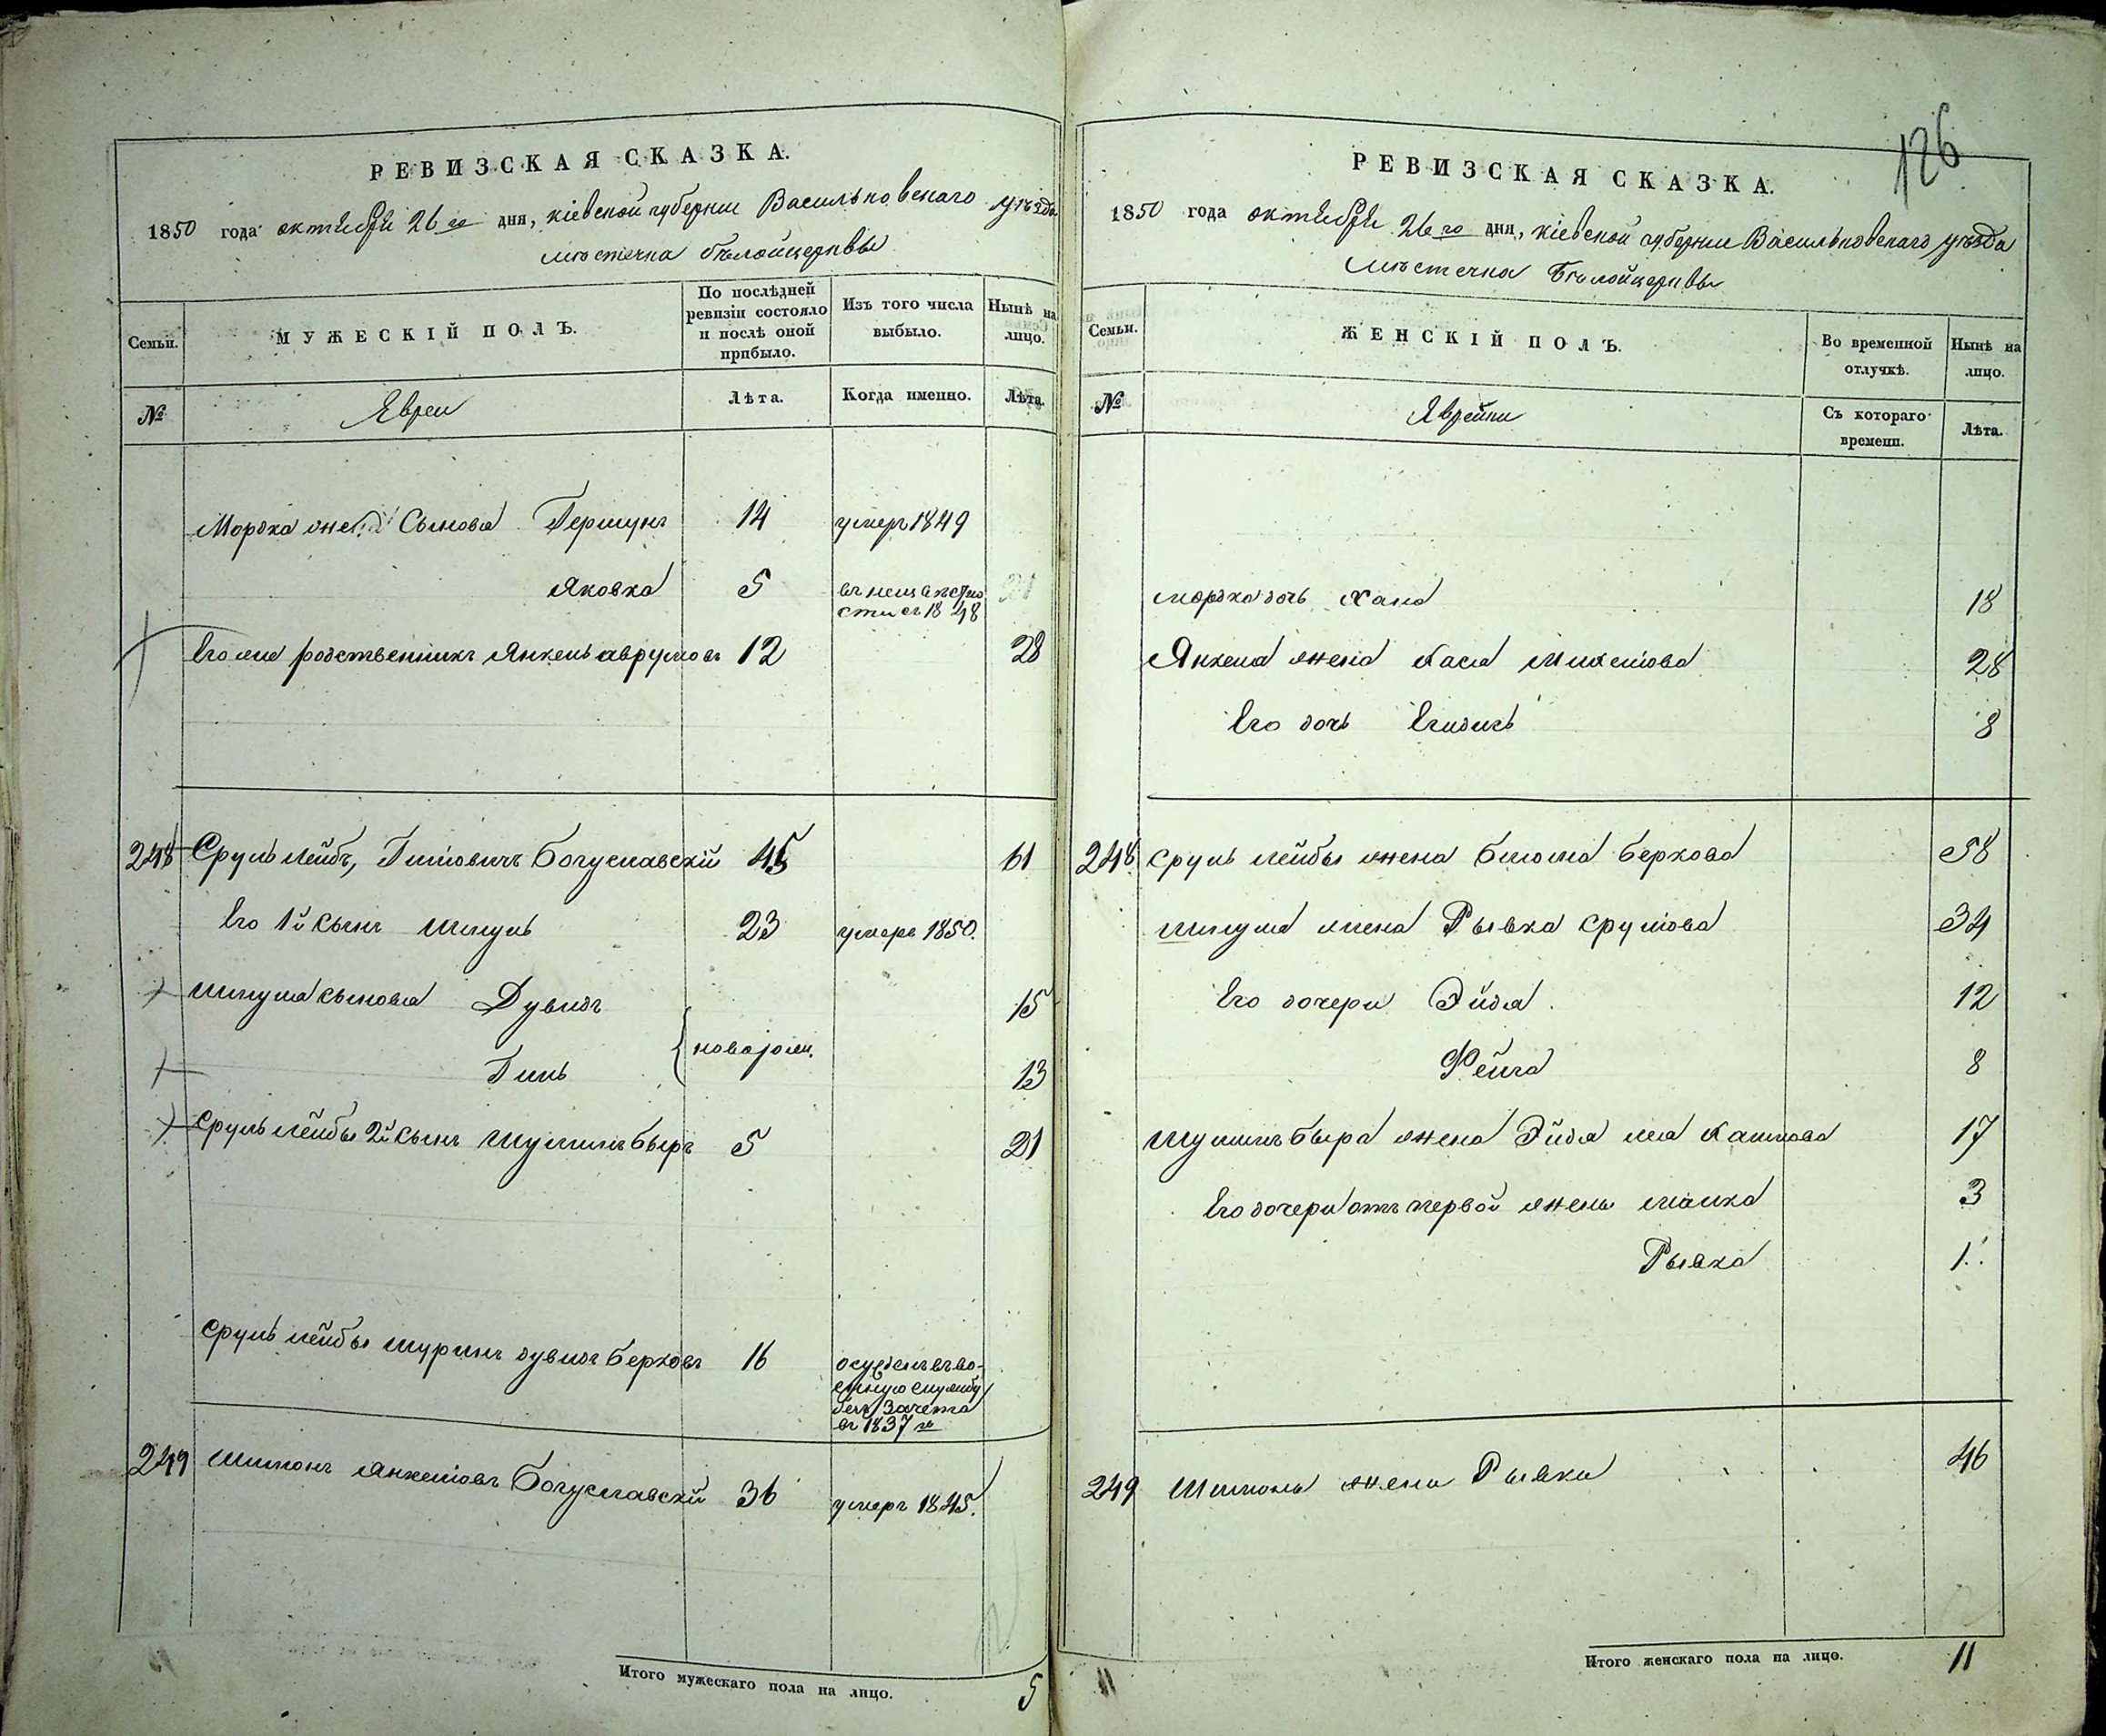 РЕВИЗСКАЯ СКАЗКА.
1850 года октября 26го дня, кіевской губерніи Васильковскаго уѣзда
мѣстечка бѣлойцеркви
Семьи. МУЖЕСКІЙ ПОЛЪ. По послѣдней ревизіи состояло и послѣ оной прибыло. Изъ того числа выбыло. Нынѣ на лицо.
№ Евреи Лѣта. Когда именно. Лѣта.
Мордка Сынова Гершунъ 14 умеръ 1849
Яковка 5 въ неизвѣстно
сти съ 1848
его же родственникъ Янкель аврумовъ 12 28
248 Сруль лейбъ, Гилiовичъ Богуславскій 45 61
Его 1й сынъ шмуль 23 умеръ 1850.
шмуля сыновя Дувидъ 15
новорож.
Гиль 13
Сруль лейбы 2й сынъ шулимъ беръ 5 21
Сруль лейбы шуринъ дувидъ Берковъ 16 осужденъ въ во-
енную службу
безъ зачета
въ 1837 го
249 шимонъ Янкелiовъ Богуславскій 36 умеръ 1845.
Итого мужескаго пола на лицо. 5
126
РЕВИЗСКАЯ СКАЗКА.
1850 года октября 26го дня, кіевской губерніи Васильковскаго уѣзда
мѣстечка Бѣлойцеркви
Семьи. ЖЕНСКІЙ ПОЛЪ. Во временной отлучкѣ. Нынѣ на лицо.
№ Еврейки Съ котораго времени. Лѣта.
мордка дочь Хана 18
Янкеля жена Хася 28
Его дочь 8
248 Сруль лейбы жена Блюма беркова 58
шмуля жена Рывка срулiова 34
Его дочери Эйдя 12
Фейга 8
шулимъ бера жена Эйдя 17
Его дочери отъ первой жены малка 3
Рывка 1
249 Шимона жена Рывка 46
Итого женскаго пола на лицо. 11
11